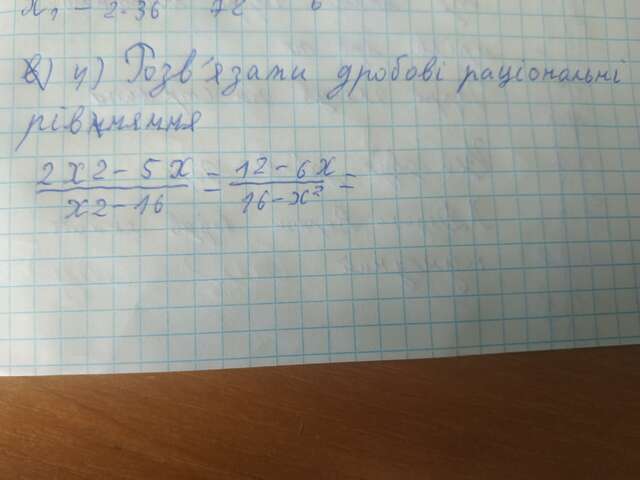 x₁ = 2·36 72 6
в) 4) Розв'язати дробові раціональні
рівняння
2x2-5x = 12-6x =
x2-16 16-x²